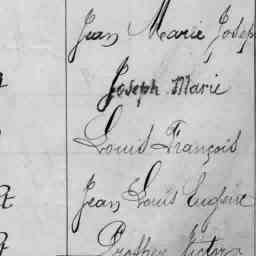 Jean Marie Josep
Joseph Marie
Louis François
Jean Louis Eugène
Prosper Victor